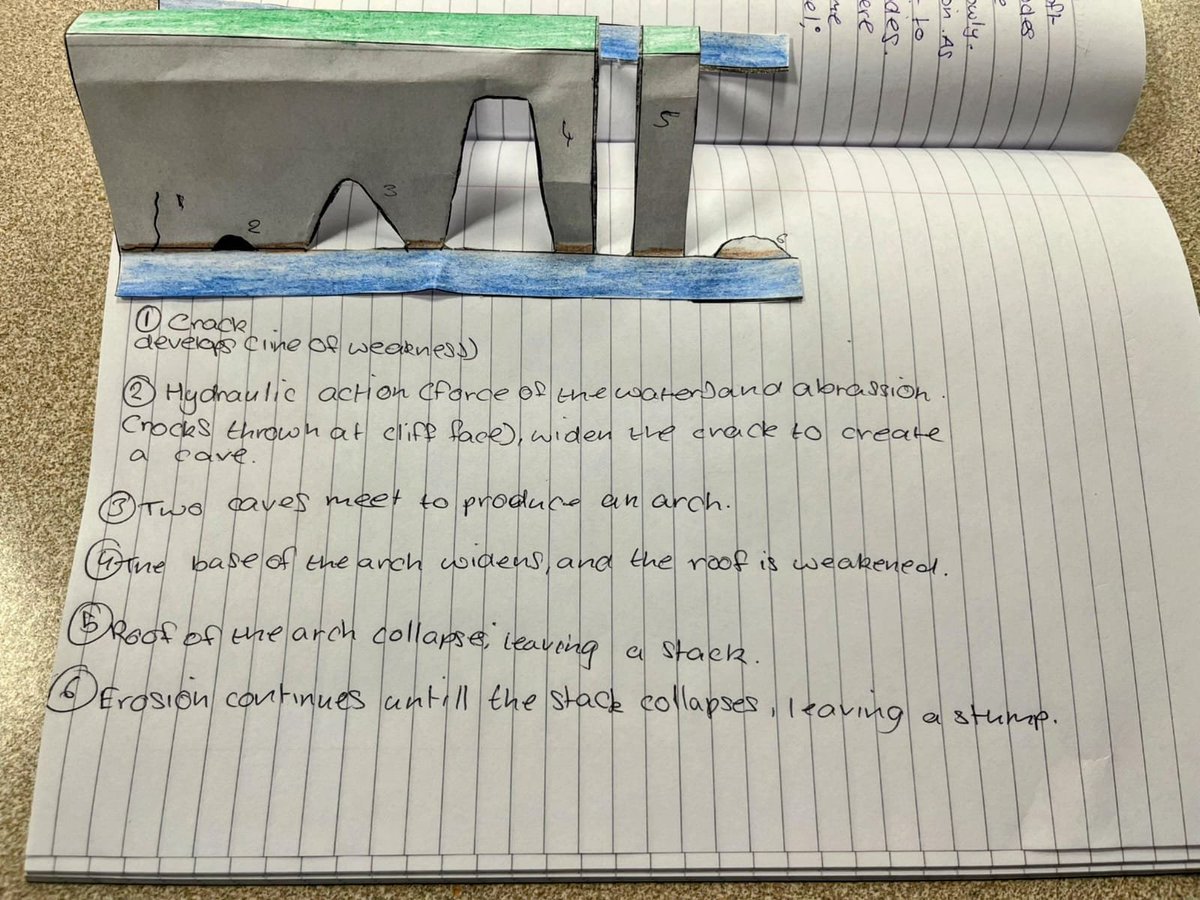 oft
odes
e
owly.
on. As
to
des.
ere
me
el;
1
2
3
4
5
6
① Crack
develops (line of weakness)
② Hydraulic action (force of the water) and abrassion.
(rocks thrown at cliff face), widen the crack to create
a cave.
③ Two caves meet to produce an arch.
④ The base of the arch widens, and the roof is weakened.
⑤ Roof of the arch collapse, leaving a stack.
⑥ Erosion continues untill the stack collapses, leaving a stump.